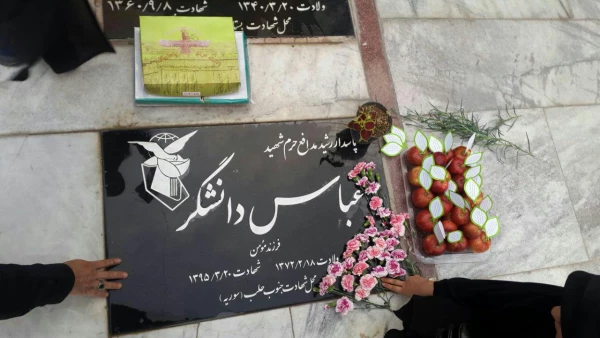 ولادت ۱۳۴۰/۳/۲۰ شهادت ۱۳۶۰/۹/۸
محل شهادت
پاسدار رشید مدافع حرم شهید
عباس دانشگر
فرزند مؤمن
ولادت ۱۳۷۲/۲/۱۸ شهادت ۱۳۹۵/۳/۲۰
محل شهادت جنوب حلب (سوریه)